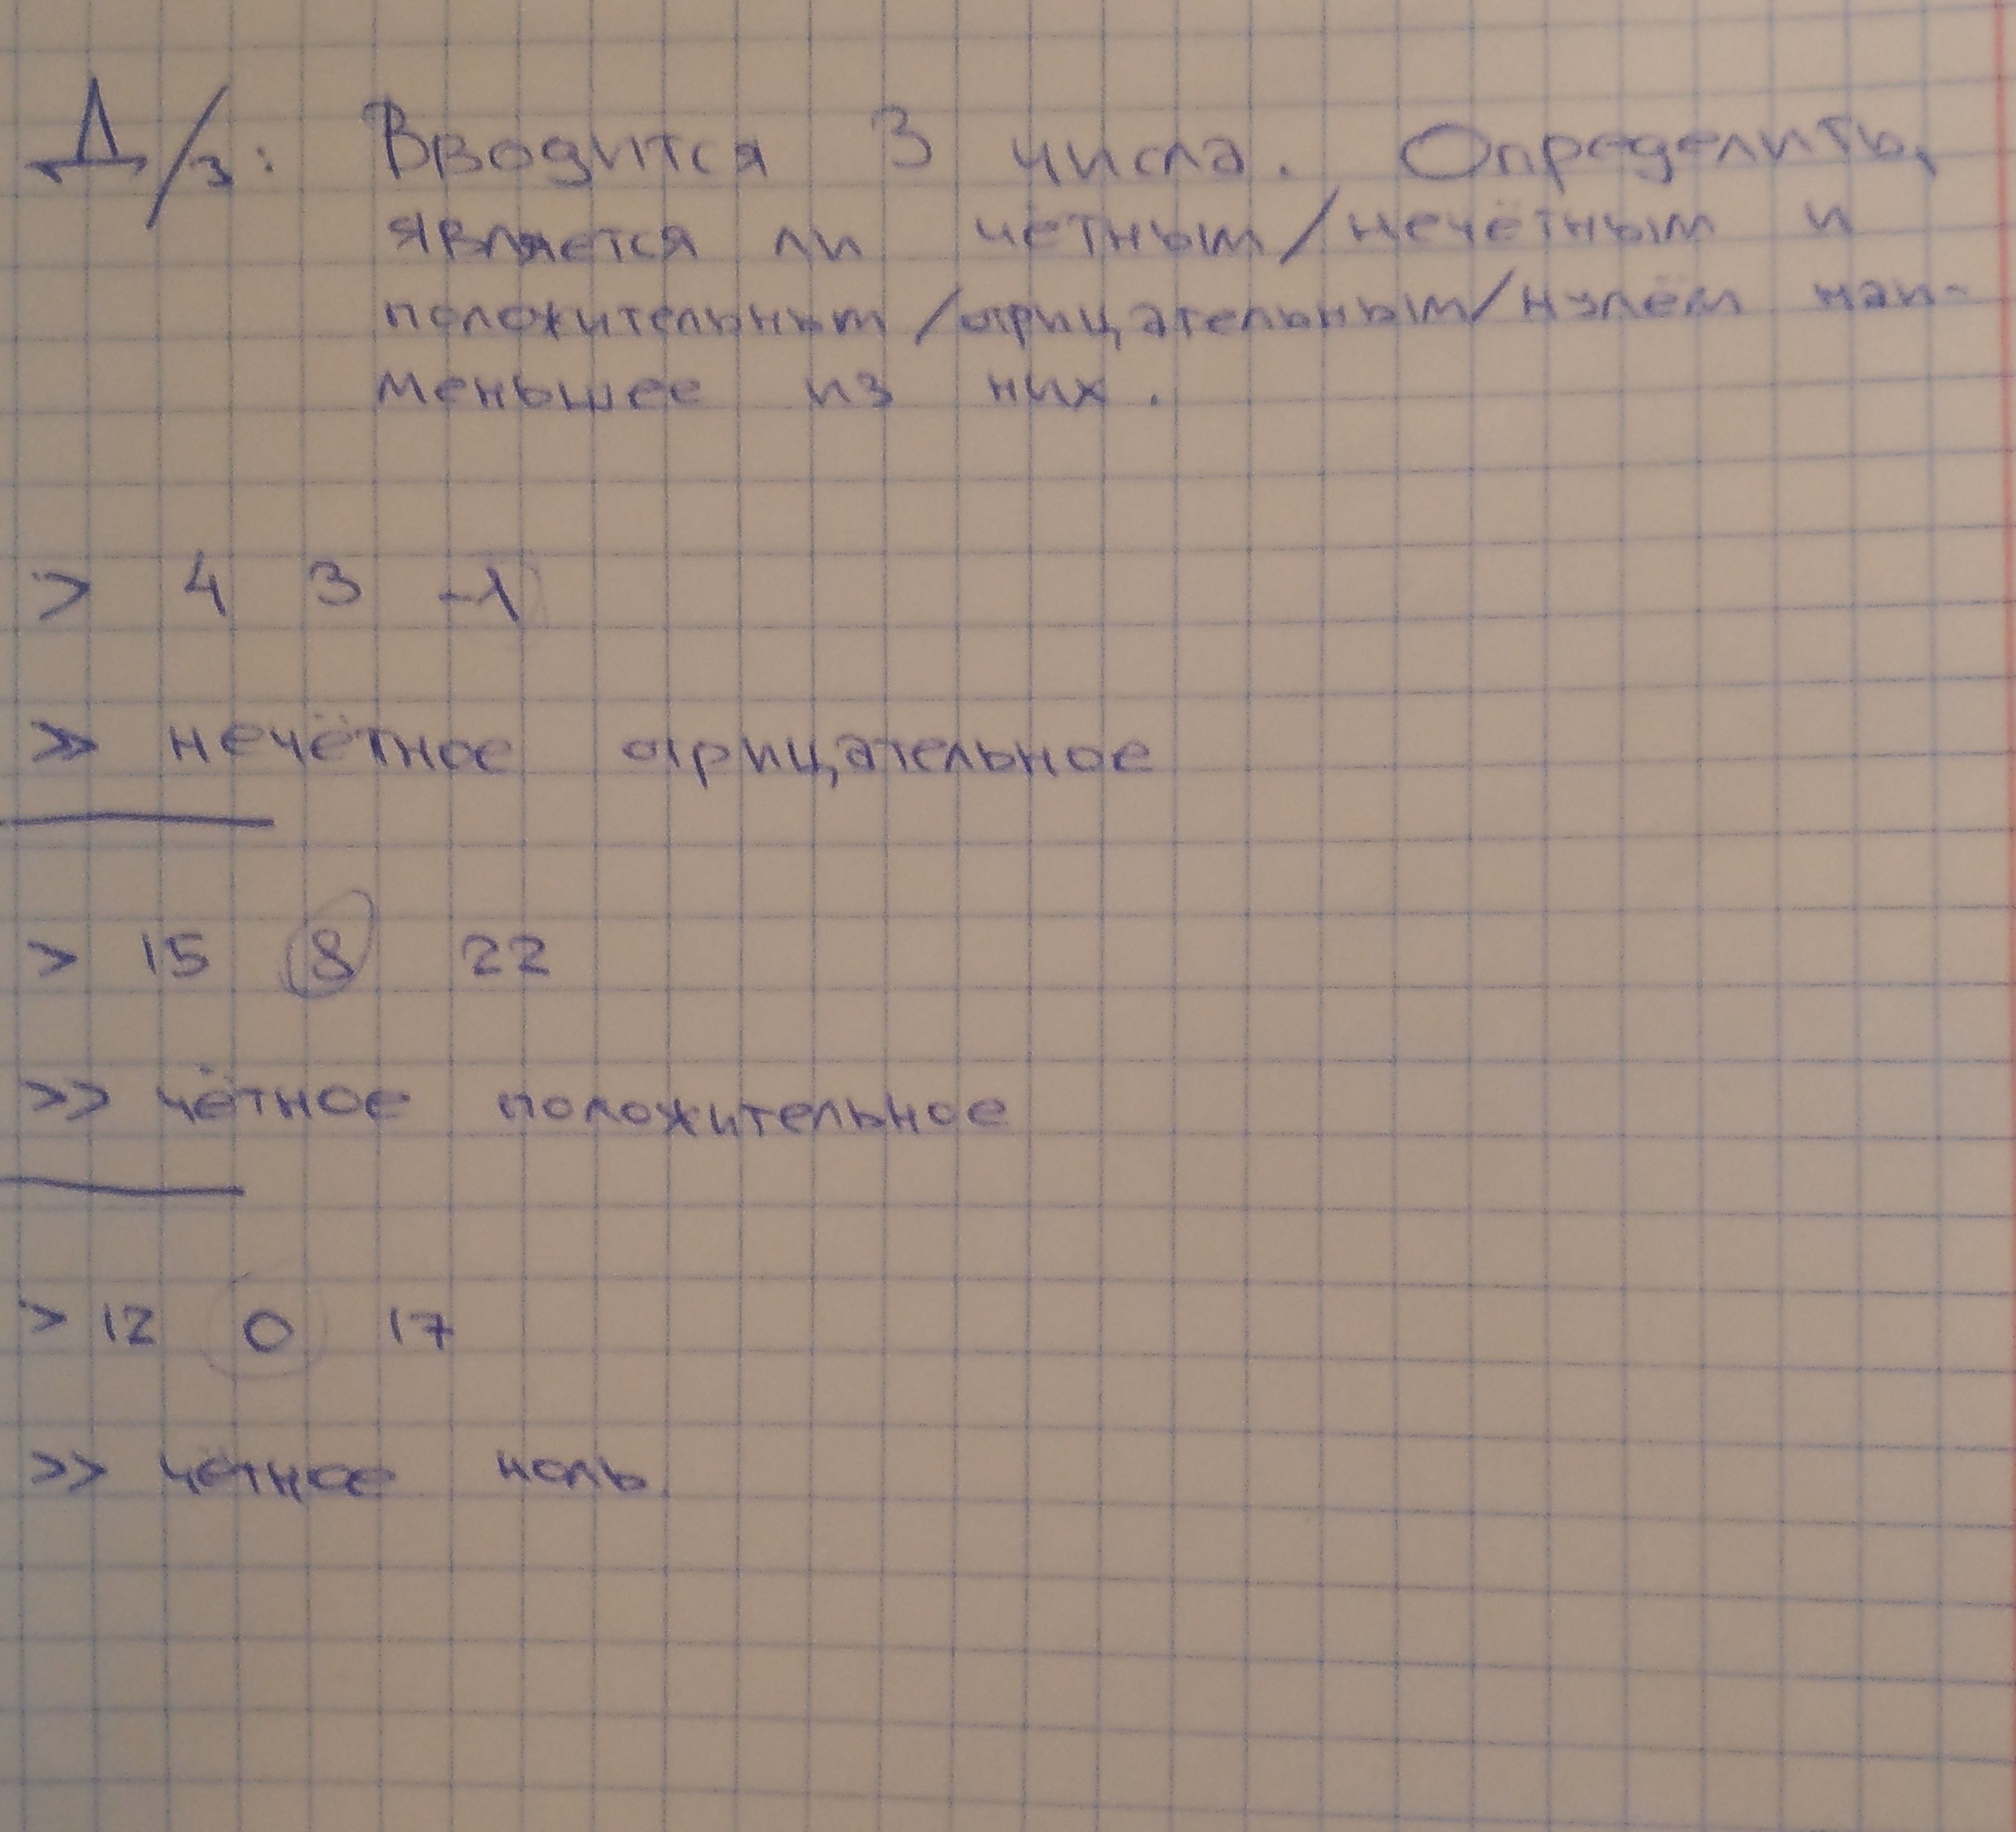 Д/з: Вводится 3 числа. Определить,
является ли чётным/нечётным и
положительным/отрицательным/нулём наи-
меньшее из них.
> 4 3 -1
>> нечётное отрицательное
> 15 8 22
>> чётное положительное
> 12 0 17
>> чётное ноль